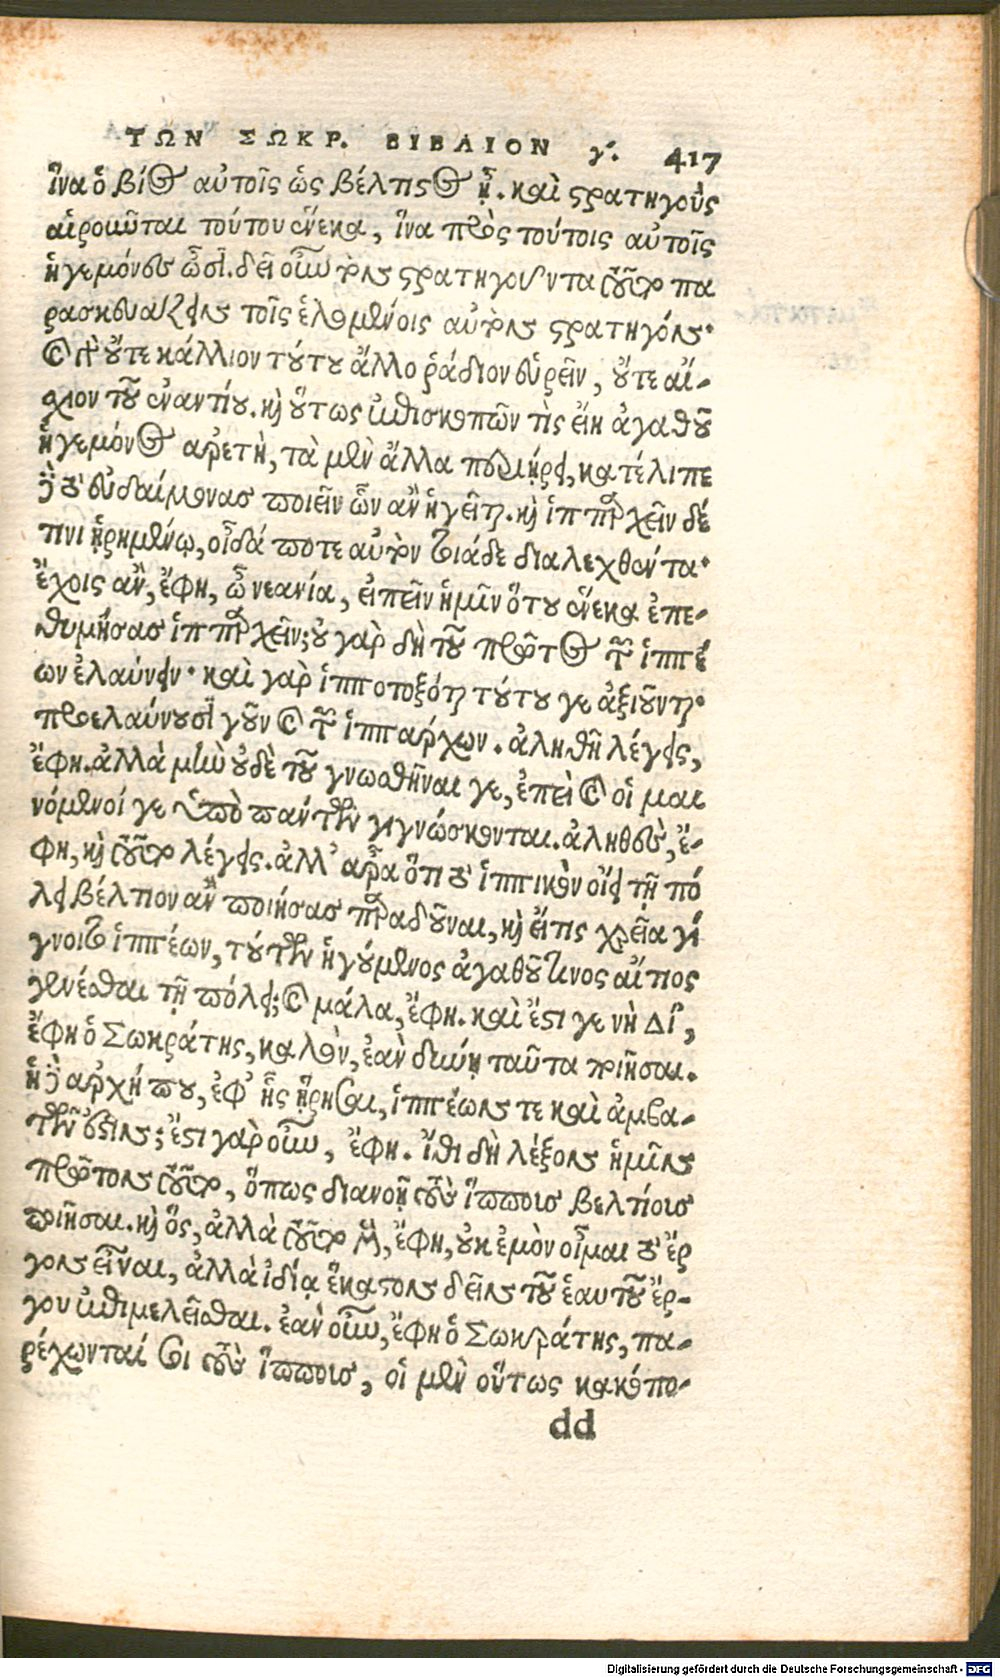 ΤΩΝ ΣΩΚΡ. ΒΙΒΛΙΟΝ γ΄. 417
ἵνα ὁ βίος αὐτοῖς ὡς βέλτιστος ᾖ. καὶ στρατηγοὺς
αἱροῦνται τούτου ἕνεκα, ἵνα πρὸς τούτοις αὐτοῖς
ἡγεμόνες ὦσι. δεῖ οὖν τὸν στρατηγοῦντα τοῦτο πα
ρασκευάζειν τοῖς ἑλομένοις αὐτὸν στρατηγόν·
καὶ γὰρ οὔτε κάλλιον τούτου ἄλλο ῥᾴδιον εὑρεῖν, οὔτε αἴ-
χιον τοῦ ἐναντίου. καὶ οὕτως ἐπισκοπῶν τίς εἴη ἀγαθοῦ
ἡγεμόνος ἀρετὴ, τὰ μὲν ἄλλα περιῄρει, κατέλιπε
δὲ τὸ εὐδαίμονας ποιεῖν ὧν ἂν ἡγεῖται. καὶ ἱππαρχεῖν δέ
τινι ᾑρημένῳ, οἶδά ποτε αὐτὸν τοιάδε διαλεχθέντα·
ἔχοις ἂν, ἔφη, ὦ νεανία, εἰπεῖν ἡμῖν ὅτου ἕνεκα ἐπε-
θυμήσας ἱππαρχεῖν; οὐ γὰρ δὴ τοῦ πρῶτος τῶν ἱππέ
ων ἐλαύνειν· καὶ γὰρ ἱπποτοξόται τούτου γε ἀξιοῦνται·
προελαύνουσι γοῦν καὶ τῶν ἱππάρχων. ἀληθῆ λέγεις,
ἔφη. ἀλλὰ μὴν οὐδὲ τοῦ γνωσθῆναι γε, ἐπεὶ καὶ οἱ μαι
νόμενοί γε ὑπὸ πάντων γιγνώσκονται. ἀληθὲς, ἔ-
φη, καὶ τοῦτο λέγεις. ἀλλ' ἆρα ὅτι τὸ ἱππικὸν οἴει τῇ πό
λει βέλτιον ἂν ποιήσας παραδοῦναι, καὶ εἴ τις χρεία γί
γνοιτο ἱππέων, τούτων ἡγούμενος ἀγαθοῦ τινος αἴτιος
γενέσθαι τῇ πόλει; καὶ μάλα, ἔφη. καὶ ἔστι γε νὴ Δί',
ἔφη ὁ Σωκράτης, καλὸν, ἐὰν δύνῃ ταῦτα ποιῆσαι.
ἡ δὲ ἀρχή που, ἐφ' ἧς ᾕρησαι, ἱππέων τε καὶ ἀμβα-
τῶν ἐστιν; ἔστι γὰρ οὖν, ἔφη. ἴθι δὴ λέξον ἡμῖν
πρῶτον τοῦτο, ὅπως διανοῇ τοὺς ἵππους βελτίους
ποιῆσαι. καὶ ὃς, ἀλλὰ τοῦτο μὲν, ἔφη, οὐκ ἐμὸν οἶμαι τὸ ἔρ
γον εἶναι, ἀλλὰ ἰδίᾳ ἕκαστον δεῖν τοῦ ἑαυτοῦ ἔρ-
γου ἐπιμελεῖσθαι. ἐὰν οὖν, ἔφη ὁ Σωκράτης, πα-
ρέχωνταί σοι τοὺς ἵππους, οἱ μὲν οὕτως κακόπο-
dd
Digitalisierung gefördert durch die Deutsche Forschungsgemeinschaft - DFG